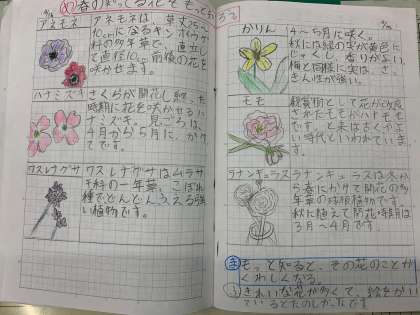 4/16
め 春の知ってる花をもっと
アネモネ
アネモネは、草丈25〜
10cmになるキンポウゲ
科の多年草で、直立し
て直径10cm前後の花を
咲かせます。
ハナミズキ
さくらが開花し終った
時期に花を咲かせるハ
ナミズキ。見ごろは、
4月から5月にかけ
てです。
ワスレナグサ
ワスレナグサはムラサ
キ科の一年草。こぼれ
種でどんどんふえる強
い植物です。
かりん
4〜5月に咲く。
秋には緑の実が黄色に
じゅくし、香りがよい。
梅と同様に実は、さ
きん性が強い。
モモ
観賞用として花が改良
されたモモがハナモモ
です。
い時代といわれていま
す。
ラナンキュラス
ラナンキュラスは冬か
ら春にかけて開花の多
年草の球根植物です。
秋に植えて開花時期は
3月〜4月です。
もっと知ると、その花のことが
くわしくなる。
きれいな花が多くて、絵をかい
ているとたのしかったです